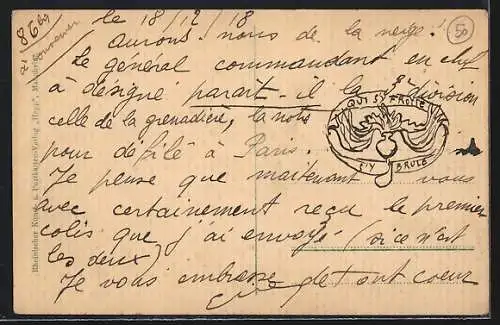 le 18/12/18
Aurons-nous de la neige!
Le général commandant en chef
a désigné parait-il la 8e division
celle de la grenadière, la notre
pour défilé à Paris.
QUI S'Y FROTTE
S'Y BRULE
Je pense que maitenant vous
avec certainement reçu le premier
colis que j'ai envoyé (si ce n'est
les deux)
Je vous embrasse de tout coeur
86 bg
souvenir
50
Rheinischer Kunst- & Postkarten-Verlag